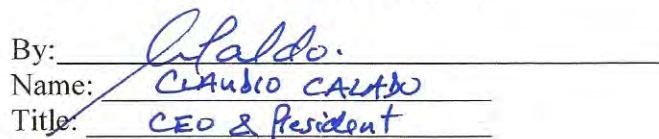 By: CCalado.
Name: CLAUDIO CALADO
Title: CEO & President